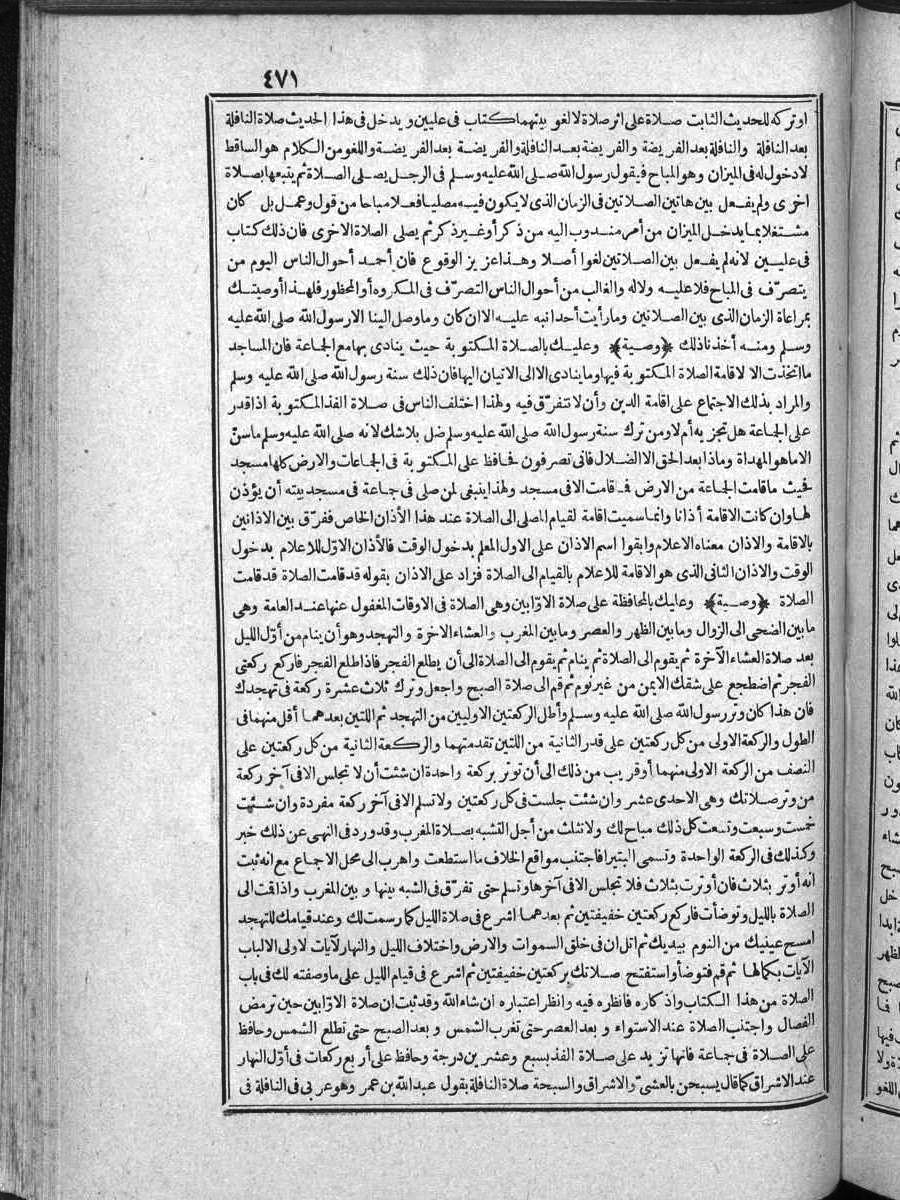 ٤٧١
اوتركه للحديث الثابت صلاة على اثر صلاة لا لغو بينهما كتاب فى عليين ويدخل فى هذا الحديث صلاة النافلة
بعد النافلة والنافلة بعد الفريضة والفريضة بعد النافلة والفريضة بعد الفريضة واللغو من الكلام هو الساقط
لا دخول له فى الميزان وهو المباح فيقول رسول الله صلى الله عليه وسلم فى الرجل يصلى الصلاة ثم يتبعها بصلاة
اخرى ولم يفعل بين هاتين الصلاتين فى الزمان الذى لا يكون فيه مصليا فعلا مباحا من قول وعمل بل كان
مشتغلا بما يدخل الميزان من أمر مندوب اليه من ذكر أو غير ذكر ثم يصلى الصلاة الاخرى فان ذلك كتاب
فى عليين لانه لم يفعل بين الصلاتين لغوا أصلا وهذا عزيز الوقوع فان أحمد أحوال الناس اليوم من
يتصرّف فى المباح فلا عليه ولا له والغالب من أحوال الناس التصرّف فى المكروه أو المحظور فلهذا أوصيتك
بمراعاة الزمان الذى بين الصلاتين وما رأيت أحدا نبه عليه الا ان كان وما وصل الينا الا رسول الله صلى الله عليه
وسلم ومنه أخذنا ذلك ﴿وصية﴾ وعليك بالصلاة المكتوبة حيث ينادى بها مع الجماعة فان المساجد
ما اتخذت الا لاقامة الصلاة المكتوبة فيها وما ينادى الا الى الاتيان اليها فان ذلك سنة رسول الله صلى الله عليه وسلم
والمراد بذلك الاجتماع على اقامة الدين وأن لا تتفرّق فيه ولهذا اختلف الناس فى صلاة الفذ المكتوبة اذا قدر
على الجماعة هل تجزيه أم لا ومن ترك سنة رسول الله صلى الله عليه وسلم ضل بلا شك لانه صلى الله عليه وسلم ما سنّ
الا ما هو الهداة وماذا بعد الحق الا الضلال فانى تصرفون فحافظ على المكتوبة فى الجماعات والارض كلها مسجد
فحيث ما قامت الجماعة من الارض فما قامت الا فى مسجد ولهذا ينبغى لمن صلى فى جماعة فى مسجد بيته أن يؤذن
لها وان كانت الاقامة أذانا وانما سميت اقامة لقيام المصلى الى الصلاة عند هذا الأذان الخاص ففرّق بين الاذانين
بالاقامة والاذان معناه الاعلام وابقوا اسم الاذان على الاول المعلم بدخول الوقت فالأذان الاوّل للاعلام بدخول
الوقت والاذان الثانى الذى هو الاقامة للاعلام بالقيام الى الصلاة فزاد على الاذان بقوله قد قامت الصلاة قد قامت
الصلاة ﴿وصية﴾ وعليك بالمحافظة على صلاة الاوّابين وهى الصلاة فى الاوقات المغفول عنها عند العامة وهى
ما بين الضحى الى الزوال وما بين الظهر والعصر وما بين المغرب والعشاء الآخرة والتهجد وهو أن ينام من أوّل الليل
بعد صلاة العشاء الآخرة ثم يقوم الى الصلاة ثم ينام ثم يقوم الى الصلاة الى أن يطلع الفجر فاذا طلع الفجر فاركع ركعتى
الفجر ثم اضطجع على شقك الايمن من غير نوم ثم قم الى صلاة الصبح واجعل وترك ثلاث عشرة ركعة فى تهجدك
فان هذا كان وتر رسول الله صلى الله عليه وسلم وأطل الركعتين الاوليين من التهجد ثم اللتين بعدهما أقل منهما فى
الطول والركعة الاولى من كل ركعتين على قدر الثانية من اللتين تقدمتهما والركعة الثانية من كل ركعتين على
النصف من الركعة الاولى منهما أو قريب من ذلك الى أن توتر بركعة واحدة ان شئت أن لا تجلس الا فى آخر ركعة
من وتر صلاتك وهى الاحدى عشر وان شئت جلست فى كل ركعتين ولا تسلم الا فى آخر ركعة مفردة وان شئت
خمست وسبعت وتسعت كل ذلك مباح لك ولا تثلث من أجل التشبه بصلاة المغرب وقد ورد فى النهى عن ذلك خبر
وكذلك فى الركعة الواحدة وتسمى البتيرا فاجتنب مواقع الخلاف ما استطعت واهرب الى محل الاجماع مع انه ثبت
انه أوتر بثلاث فان أوترت بثلاث فلا تجلس الا فى آخرها وتسلم حتى تفرّق فى الشبه بينها وبين المغرب واذا قمت الى
الصلاة بالليل وتوضأت فاركع ركعتين خفيفتين ثم بعدهما اشرع فى صلاة الليل كما رسمت لك وعند قيامك للتهجد
امسح عينيك من النوم بيديك ثم اتل ان فى خلق السموات والارض واختلاف الليل والنهار لآيات لاولى الالباب
الآيات بكمالها ثم قم فتوضأ واستفتح صلاتك بركعتين خفيفتين ثم اشرع فى قيام الليل على ما وصفته لك فى باب
الصلاة من هذا الكتاب واذكاره فانظره فيه وانظر اعتباره ان شاء الله وقد ثبت ان صلاة الاوّابين حين ترمض
الفصال واجتنب الصلاة عند الاستواء وبعد العصر حتى تغرب الشمس وبعد الصبح حتى تطلع الشمس وحافظ
على الصلاة فى جماعة فانها تزيد على صلاة الفذ بسبع وعشرين درجة وحافظ على أربع ركعات فى أوّل النهار
عند الاشراق كما قال يسبحن بالعشىّ والاشراق والسبحة صلاة النافلة يقول عبد الله بن عمر وهو عربى فى النافلة فى